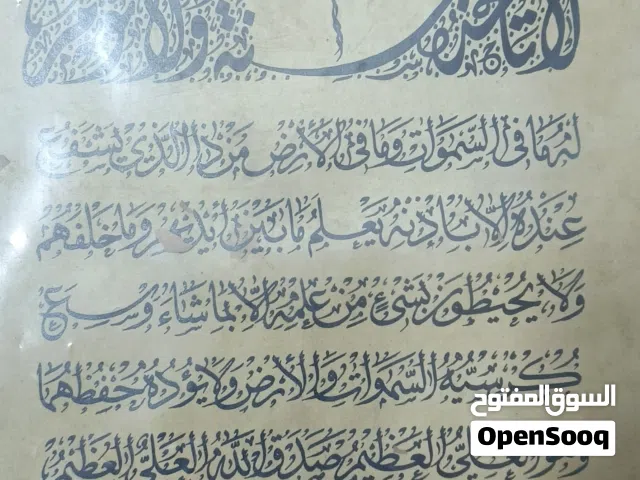 لا تأخذه سنة ولا نوم
له ما في السموات وما في الأرض من ذا الذي يشفع
عنده إلا بإذنه يعلم ما بين أيديهم وما خلفهم
ولا يحيطون بشيء من علمه إلا بما شاء وسع
كرسيه السموات والأرض ولا يؤده حفظهما
وهو العلي العظيم صدق الله العلي العظيم
السوق المفتوح
OpenSooq